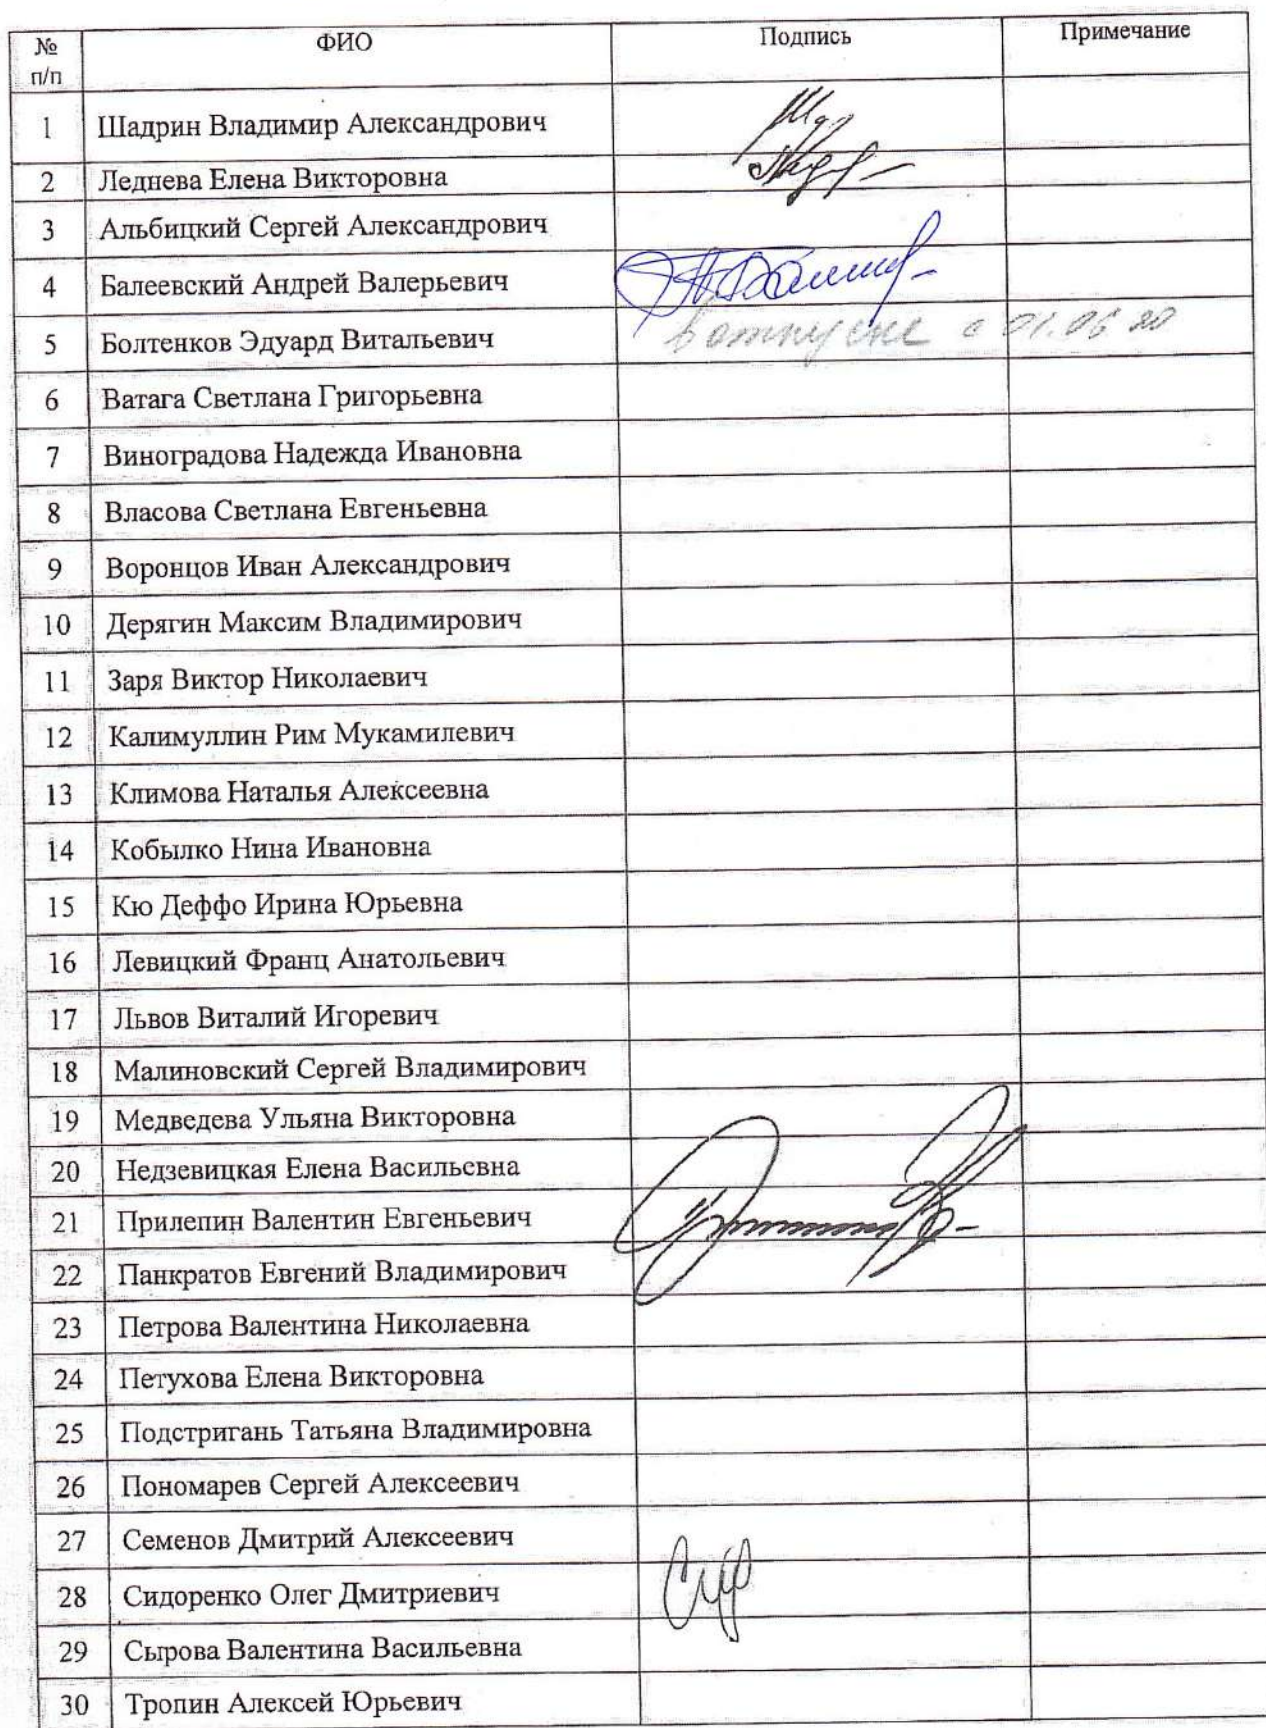 № п/п ФИО Подпись Примечание
1 Шадрин Владимир Александрович
2 Леднева Елена Викторовна
3 Альбицкий Сергей Александрович
4 Балеевский Андрей Валерьевич
5 Болтенков Эдуард Витальевич в отпуске с 01.06 20
6 Ватага Светлана Григорьевна
7 Виноградова Надежда Ивановна
8 Власова Светлана Евгеньевна
9 Воронцов Иван Александрович
10 Дерягин Максим Владимирович
11 Заря Виктор Николаевич
12 Калимуллин Рим Мукамилевич
13 Климова Наталья Алексеевна
14 Кобылко Нина Ивановна
15 Кю Деффо Ирина Юрьевна
16 Левицкий Франц Анатольевич
17 Львов Виталий Игоревич
18 Малиновский Сергей Владимирович
19 Медведева Ульяна Викторовна
20 Недзевицкая Елена Васильевна
21 Прилепин Валентин Евгеньевич
22 Панкратов Евгений Владимирович
23 Петрова Валентина Николаевна
24 Петухова Елена Викторовна
25 Подстригань Татьяна Владимировна
26 Пономарев Сергей Алексеевич
27 Семенов Дмитрий Алексеевич
28 Сидоренко Олег Дмитриевич
29 Сырова Валентина Васильевна
30 Тропин Алексей Юрьевич